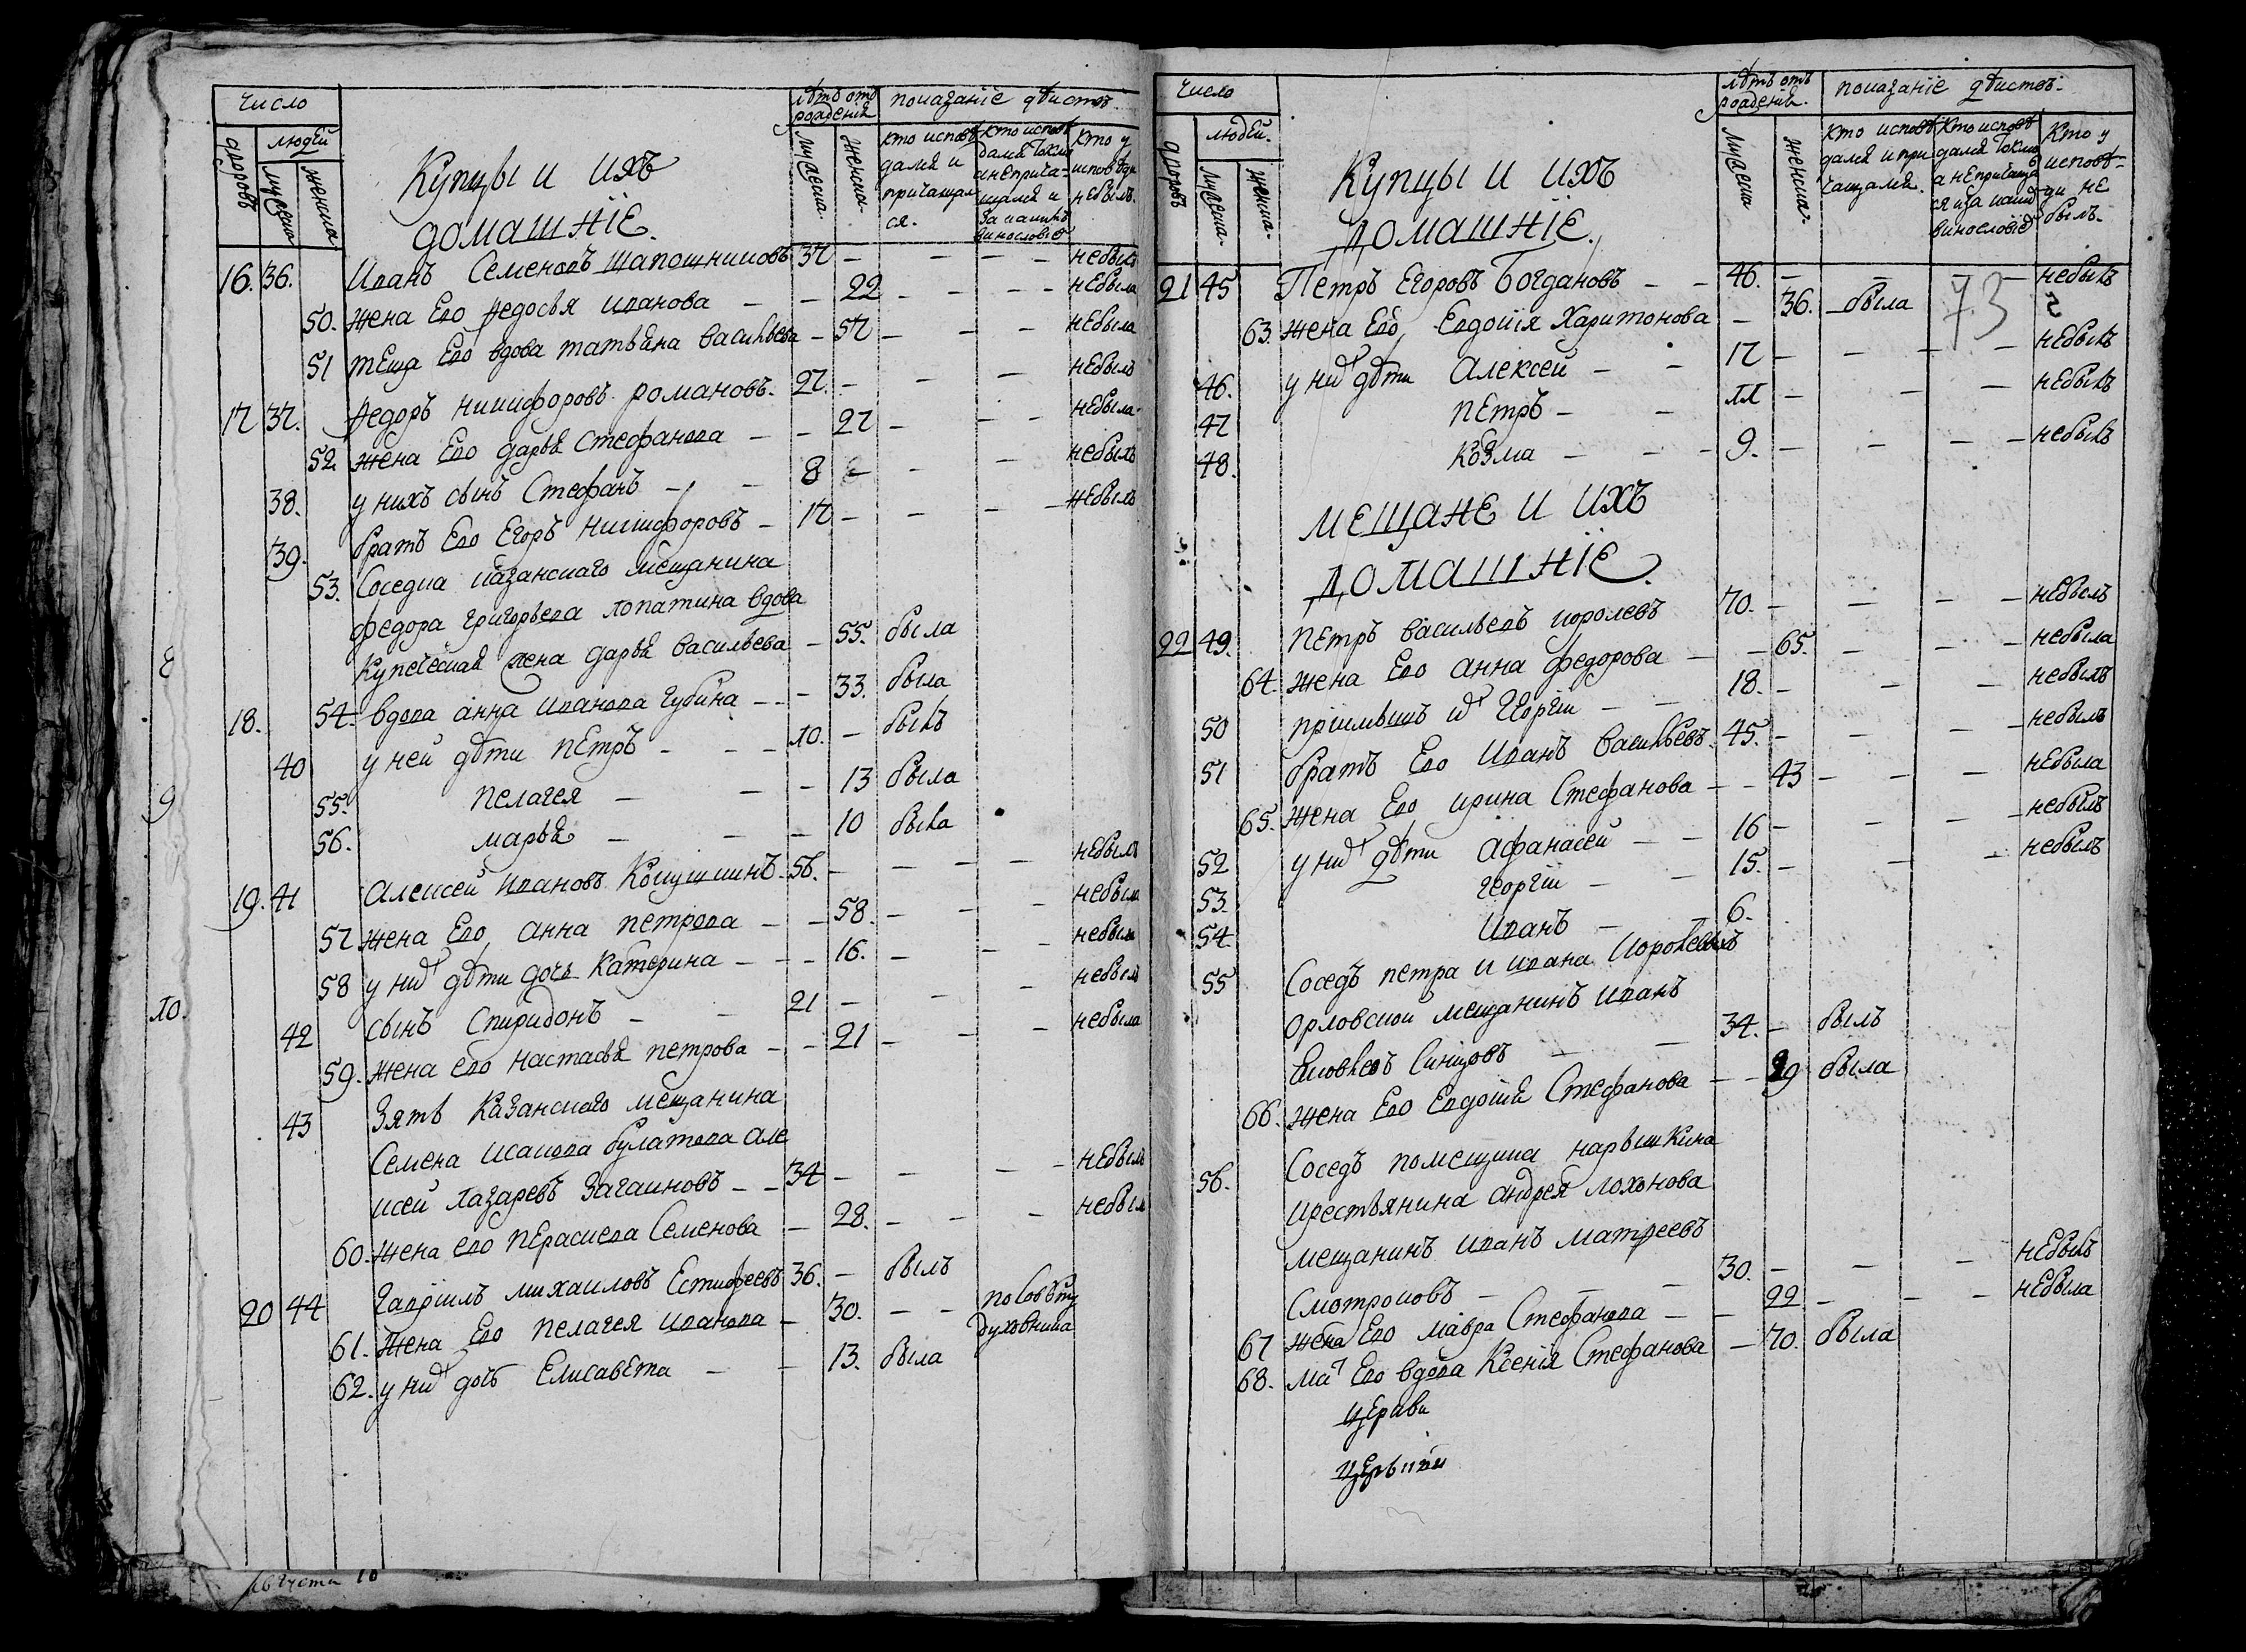 число
лѣтъ отъ рожденія
показаніе дѣйствъ.
дворовъ
людей
мужеска
женска
Купцы и ихъ
домашніе.
мужеска.
женска.
кто исповѣдался и причащался.
кто исповѣдался токмо а непричащался и за какимъ винословіемъ
кто у исповѣди небылъ.
16. 36. Иванъ Семеновъ шапошниковъ 37 – – – – небылъ
50. жена Его Федосья иванова – – 22 – – – – небыла
51 теща Его вдова татьяна васильева – 57 – – – небыла
17 37. Федоръ никифоровъ романовъ. 27. – – – небылъ
52 жена Его дарья стефанова – – 27 – – – небыла.
38. у нихъ сынъ Стефанъ – – 8 – – – небылъ
39. братъ Его Егоръ никифоровъ – 17 – – – – небылъ
53. Соседка казанскаго мещанина
федора григорьева лопатина вдова
купеческая жена дарья васильева – 55. была
18. 54. вдова анна иванова губина – – – 33. была
40 у ней дѣти петръ – – – 10. – былъ
55. пелагея – – – 13 была
56. марья – – – 10 была
19. 41 Алексей ивановъ Кокушкинъ. 56. – – – – небылъ
57 жена Его анна петрова – – 58. – – – небыла
58 у них дѣти дочь Катерина – – – 16. – – – небыла
42 сынъ Спиридонъ – – 21 – – – небылъ
59. жена его настасья петрова – – 21 – – – небыла
43 Зять казанскаго мещанина
Семена исакова булатова але
ксей лазаревъ Загаиновъ – – 34 – – – – небылъ
60. жена его перасковa Семенова – 28. – – – небыла
20 44 Гаврiилъ михаиловъ Естифеевъ 36. – былъ
61. жена Его пелагея иванова – 30. – – по совѣту духовника
62. у них дочь Елисавета – – 13. была
8
9
10.
августа 10
число
лѣтъ отъ рожденія.
показаніе дѣйствъ.
дворовъ
людей.
мужеска.
женска.
Купцы и ихъ
домашніе.
мужеска
женска.
кто исповѣдался и причащался.
кто исповѣдался токмо а непричащался и за какимъ винословіемъ
кто у исповѣди не былъ.
73
21 45 Петръ Егоровъ Богдановъ – – 46. – – – – небылъ
63. жена Его, Евдокія Харитонова – 36. – была
46. у них дѣти Алексей – – 17 – – – – небылъ
47 петръ – – 11 – – – небылъ
48. козма – – – 9. – – – – небылъ
мещане и ихъ
домашніе.
22 49. петръ васильевъ королевъ 70. – – – – небылъ
64. жена Его анна федорова – – 65. – – – небыла
50 пріимышъ их Георгiи – – 18. – – – небылъ
51 братъ Его иванъ васильевъ. 45. – – – – небылъ
65. жена Его ирина Стефанова – – 43 – – – небыла
52 у них дѣти афанасеи – – 16 – – – – небылъ
53. георгiи – – 15. – – – небылъ
54 иванъ – – 6.
55 Соседъ петра и ивана королевыхъ
орловскои мещанинъ иванъ
яковлевъ Синцовъ – – 34. – былъ
66. жена Его Евдокiя Стефанова – – 29 была
56. Соседъ помещика нарышкина
крестьянина андрея лохонова
мещанинъ иванъ матфеевъ
Смотроковъ – – – 30. – – – небылъ
67 жена Его мавра Стефанова – – 22 – – – небыла
68. мат Его вдова Ксенія Стефанова – 70. была
церкви